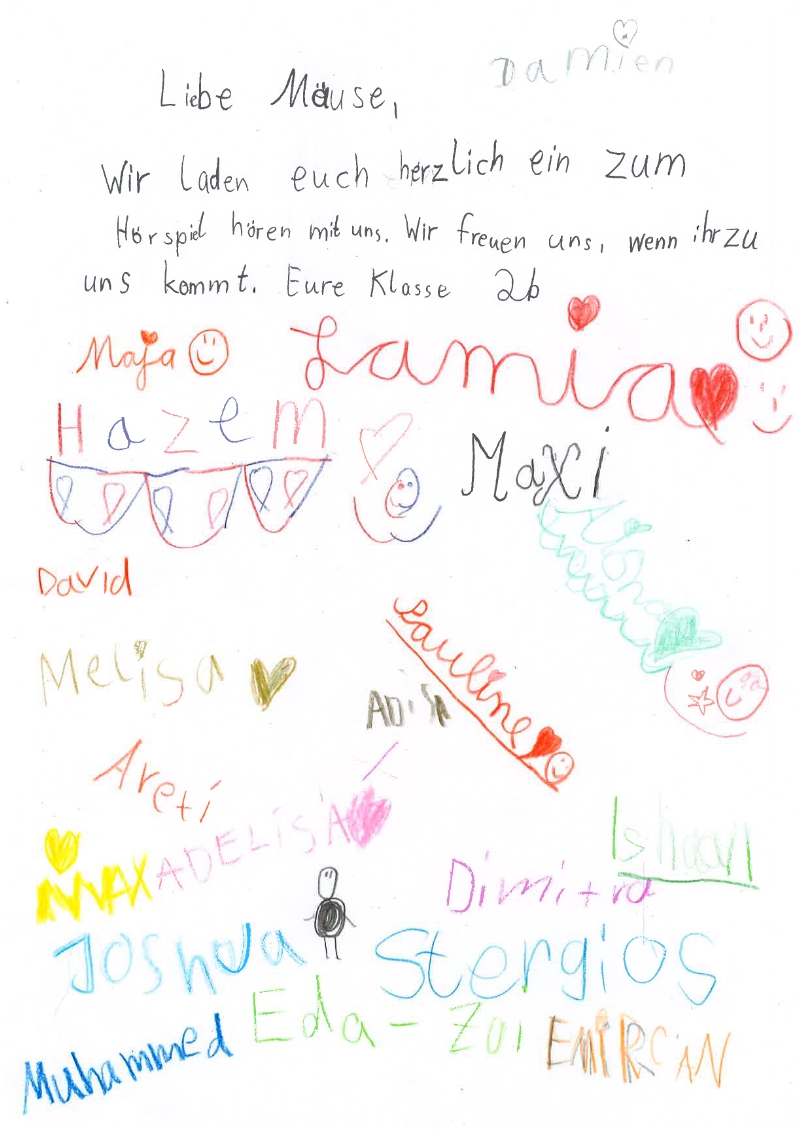 Damien
Liebe Mäuse,
Wir laden euch herzlich ein zum
Hörspiel hören mit uns. Wir freuen uns, wenn ihr zu
uns kommt. Eure Klasse 2b
Maja
Lamia
Hazem
Maxi
David
Melisa
Pauline
ADiSA
Areti
MAX
ADELiSA
Ishaan
Dimitra
Joshua
Stergios
Eda-Zoi
Muhammed
EMiRCAN